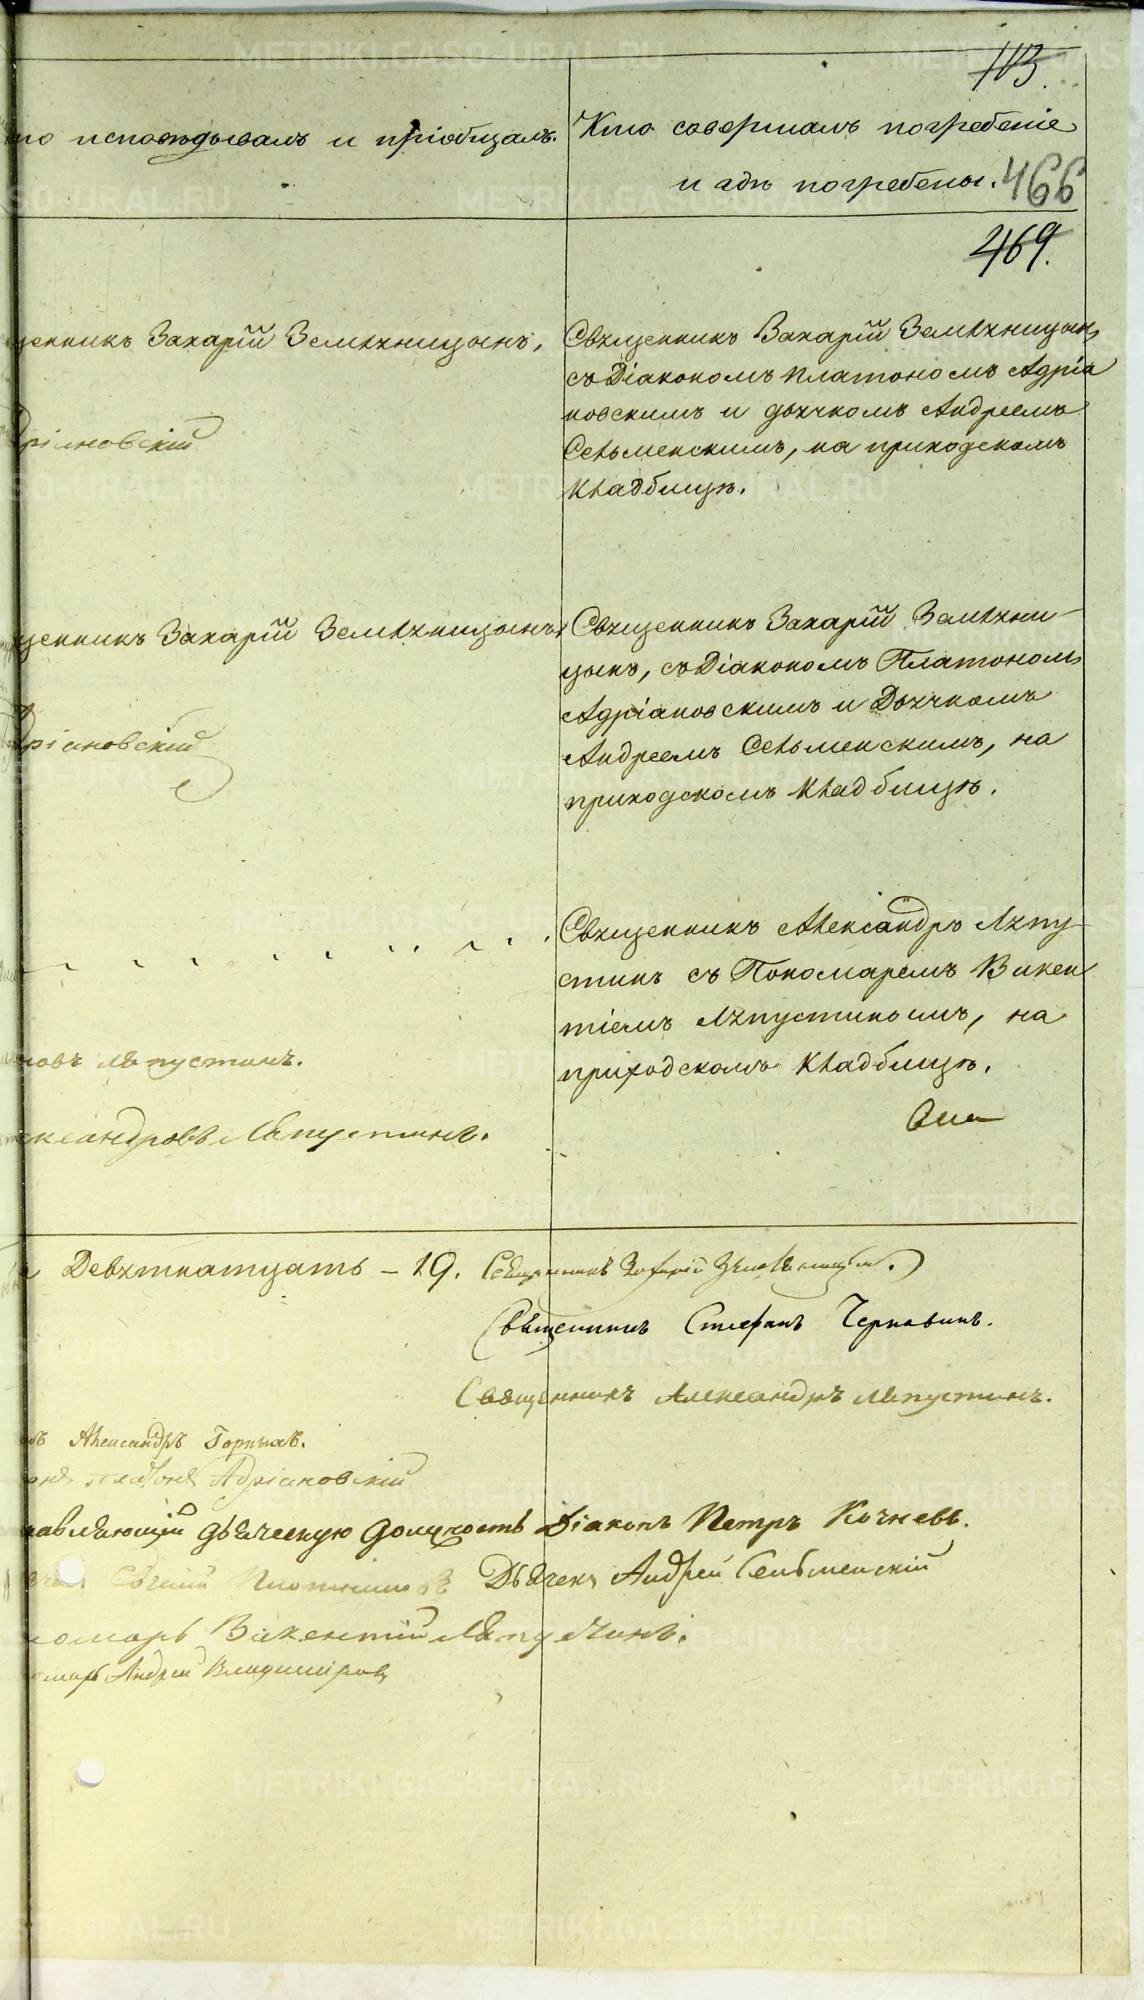 113.
то исповѣдывалъ и пріобщалъ.
Кто совершалъ погребеніе
и гдѣ погребены.
466
469.
щенникъ Захарій Земляницынъ,
ріяновскій
Священникъ Захарій Земляницынъ
съ Діакономъ Платономъ Адріа
новскимъ и дьячкомъ Андреемъ
Сельменскимъ, на приходскомъ
кладбищѣ.
щенникъ Захарій Земляницынъ,
ріановскій
Священникъ Захарій Земляни-
цынъ, съ Діакономъ Платономъ
Адріановскимъ и Дьячкомъ
Андреемъ Сельменскимъ, на
приходскомъ кладбищѣ.
новъ Ляпустинъ.
ександровъ Ляпустинъ.
Священникъ Александръ Ляпу-
стинъ съ Пономаремъ Викен
тіемъ Ляпустинымъ, на
приходскомъ кладбищѣ.
Девятнатцать – 19.
Священникъ Захарій Земляницынъ.
Священникъ Стефанъ Чернавинъ.
Священникъ Александръ Ляпустинъ.
Александръ Горныхъ.
Платонъ Адріановскій
равляющій дьяческую должность Діаконъ Петръ Кочневъ.
Дьячекъ Андрей Сельменскій
номарь Викентій Ляпустинъ.
омарь Андрей Владиміровъ
METRIKI.GASO-URAL.RU